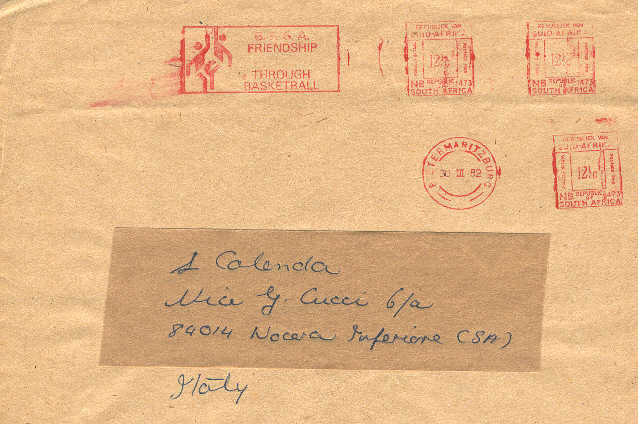 FRIENDSHIP
THROUGH
BASKETBALL
REPUBLIEK VAN
SUID-AFRIKA
12½c
N8 REPUBLIC 1473
SOUTH AFRICA
REPUBLIEK VAN
SUID-AFRIKA
12½c
N8 REPUBLIC 1473
SOUTH AFRICA
PIETERMARITZBURG
30 III 82
REPUBLIEK VAN
SUID-AFRIKA
12½c
N8 REPUBLIC 1473
SOUTH AFRICA
S Calenda
Vice G. Cucci 6/a
84014 Nocera Inferiore (SA)
Italy